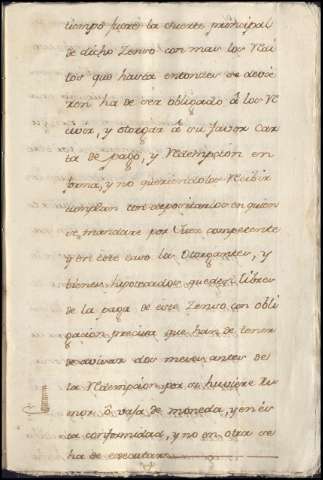 tiempo fuere la suerte principal
de dicho Zenso con mas los Redi
tos que havia entonces se devie
ren ha de ser obligado â los Re
civir, y otorgar â su favor Car
ta de pago, y Redempcion en
forma, y no queriendolos Recibir
cumplan con depositarlos en quien
se mandare por Juez competente
y en este caso los Otorgantes, y
bienes hipotecados queden libres
de la paga de este Zenso con obli
gacion precisa que han de tener
de avisar dos meses antes de
la Redempcion por si huviere Ru
mor ô vaja de moneda, y en es
ta conformidad, y no en otra se
ha de executar